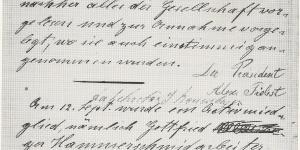 nachher aller der Gesellschaft vor-
gelesen und zur Annahme vorge-
legt, wo sie auch einstimmig an-
genommen wurden.
Der Präsident
Am 12. Sept. wurde ein Aktivmied-
glied nämlich Gottfried
ger Hammerschmidarbeiter